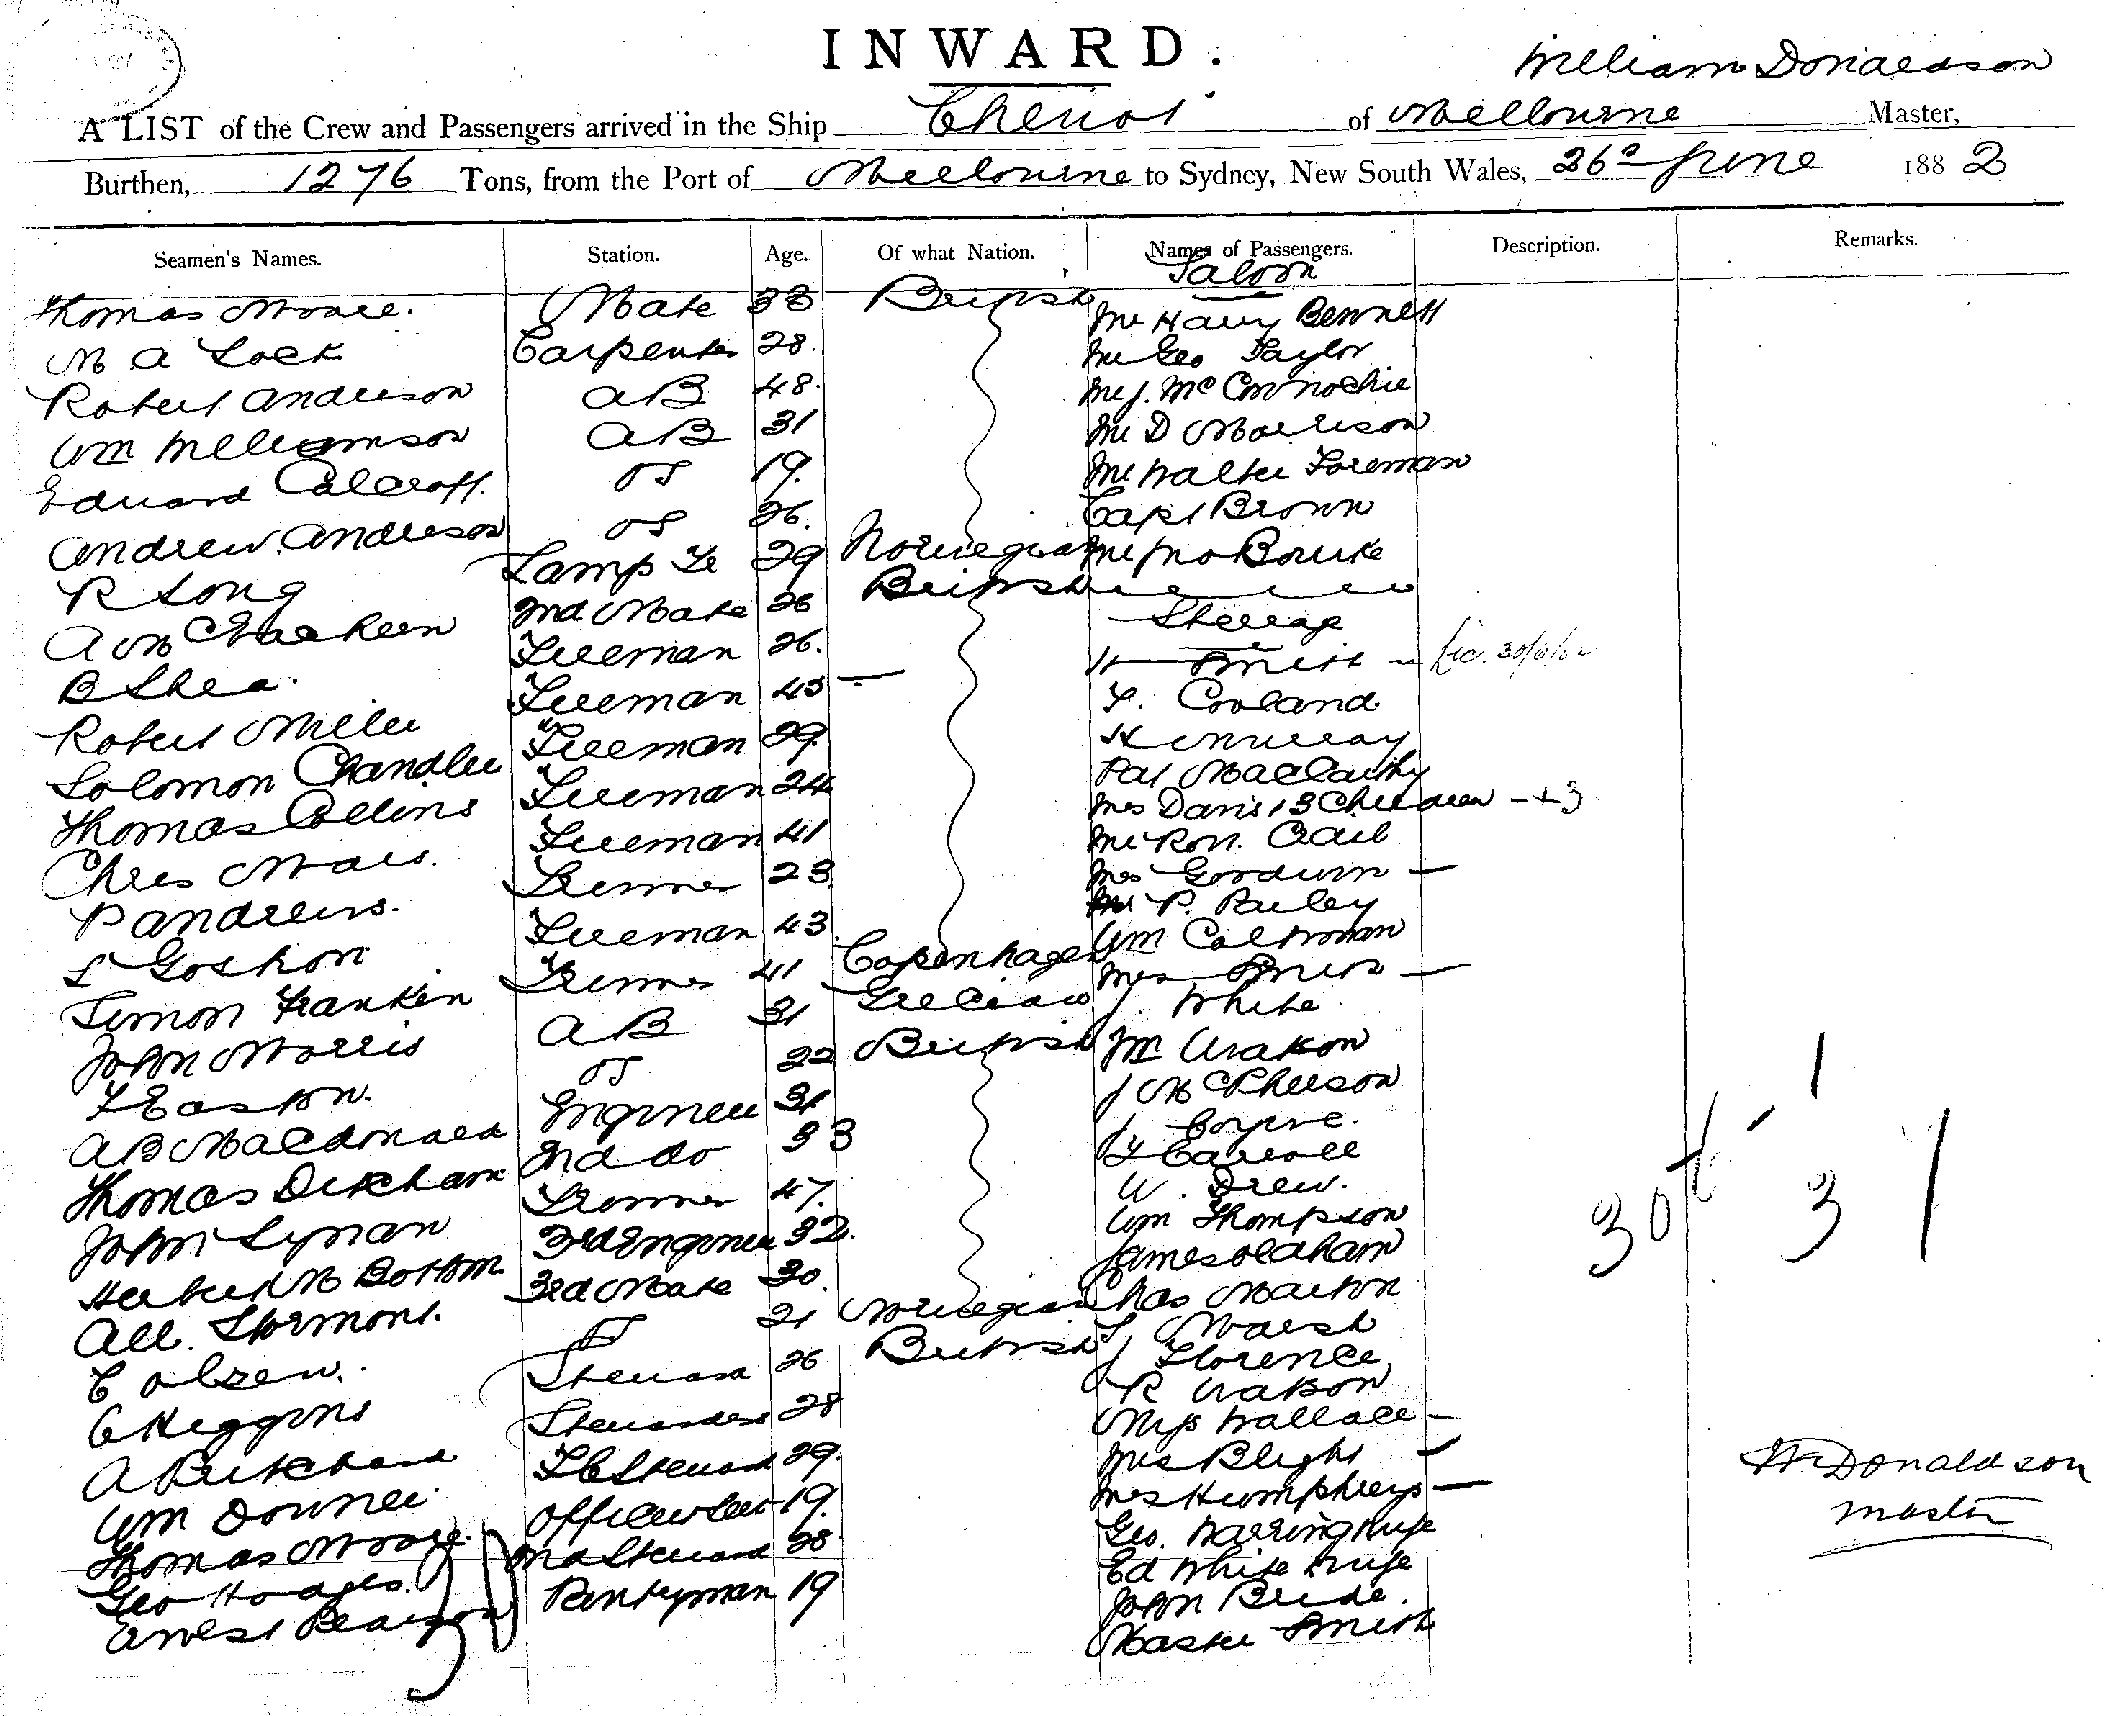 INWARD.
William Donaldson
A LIST of the Crew and Passengers arrived in the Ship Cheviot of Melbourne Master,
Burthen, 1276 Tons, from the Port of Melbourne to Sydney, New South Wales, 26th June 1882
Seamen's Names. Station. Age. Of what Nation. Names of Passengers. Description. Remarks.
Saloon
Thomas Moore. Mate 33 British Mr Harry Bennett
M A Lock Carpenter 28. Mr Geo Taylor
Robert Anderson AB 48. Mr J. McConnochie
Wm Williamson AB 31 Mr D Morrison
Edward Calcroft. OS 19. Mr Walter Foreman
Andrew Anderson OS 26. Capt Brown
R Long Lamp Tr 29 Norwegian Mr Jno Bourke
A McEachern 2nd Mate 26 British
Steerage
B Shea. Fireman 26. Smith
Robert Miller Fireman 45 F. Copland
Solomon Chandler Fireman 29. Murray
Thomas Collins Fireman 24 Pat MacCarthy
Mrs Davis & 3 Children - + 3
Chres Mars. Fireman 41 Mr Ron. Cail
P Andrews. Trimmer 23 Mrs Goodwin
L Goshon Fireman 43 Mr P. Riley
Simon Franken Trimmer 41 Copenhagen Wm Coltman
Mrs Smith
John Morris AB 31 Grecian J. White
T Easton. OS 22 British Jm Watson
A B Macdonald Engineer 31 J McPherson
Thomas Dickham 2nd do 33 J
T Carroll
John Lynan Trimmer 47. W. Drew.
Herbert M Bottom 3rd Engineer 32. Wm Thompson
All. Stormont. 3rd Mate 30. James Oldham
C Olsen. OS 21 Norwegian Chas Marton
C Higgins Steward 26 British T Marsh
J Florence
A Pritchard Stewardess 28 R Watson
Miss Wallace
Wm Downer. F C Steward 29. Mrs Blight
Thomas Moore. Officers Serv 19. Mrs Humphreys
Geo Hodges. 2nd Steward 28. Geo. Warring & wife
Ernest Pearson Pantryman 19 Ed White & wife
John Bride.
Master Smith
30
30
1
31
W Donaldson
master